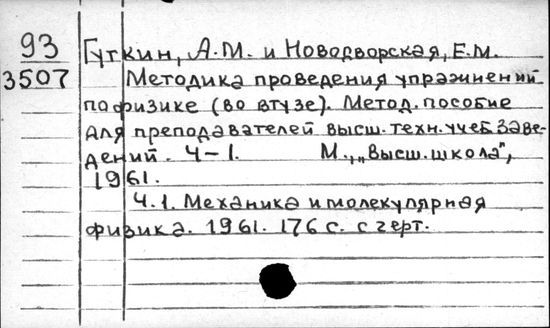 93
3507
Гуткин, А.М. и Новодворская, Е.М.
Методика проведения упражнений
по физике (во втузе). Метод. пособие
для преподавателей высш. техн. учеб. заве-
дений. Ч-1. М., „Высш. школа",
1961.
Ч.1. Механика и молекулярная
физика. 1961. 176 с. с черт.